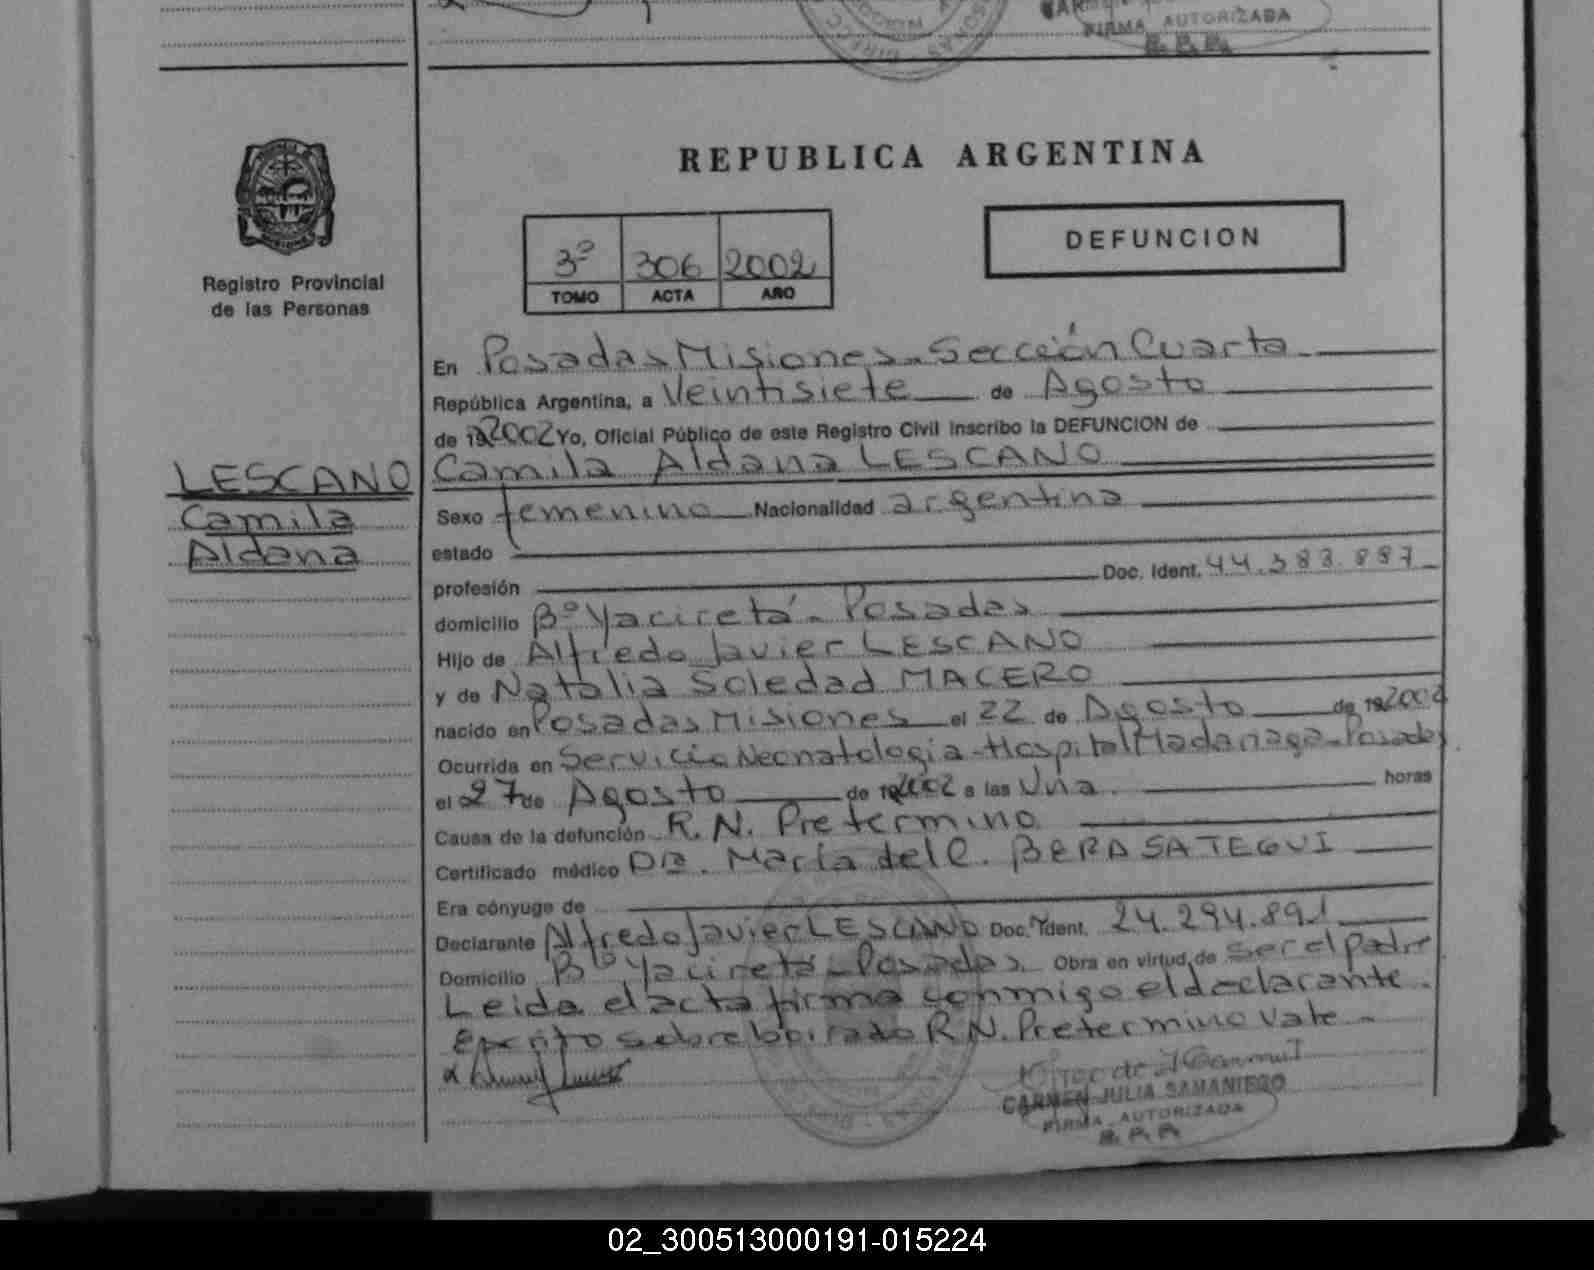 FIRMA AUTORIZADA
R. P. P.
Registro Provincial
de las Personas
REPUBLICA ARGENTINA
3º 306 2002
TOMO ACTA AÑO
DEFUNCION
En Posadas Misiones - Sección Cuarta
República Argentina, a Veintisiete de Agosto
de 192002 Yo, Oficial Público de este Registro Civil inscribo la DEFUNCION de
LESCANO
Camila
Aldana
Camila Aldana LESCANO
Sexo femenino Nacionalidad argentina
estado
profesión Doc. Ident. 44.383.887
domicilio Bº Yaciretá - Posadas
Hijo de Alfredo Javier LESCANO
y de Natalia Soledad MACERO
nacido en Posadas Misiones el 22 de Agosto de 192002
Ocurrida en Servicio Neonatologia - Hospital Madariaga - Posadas.
el 27 de Agosto de 192002 a las Una. horas
Causa de la defunción R. N. Pretermino
Certificado médico DRA. María del C. BERASATEGUI
Era cónyuge de
Declarante Alfredo Javier LESCANO Doc. Ident. 24.294.891
Domicilio Bº Yaciretá - Posadas. Obra en virtud de Ser el padre
Leida el acta firma conmigo el declarante.
Escrito sobreborrado R.N. Pretermino Vale -
CARMEN JULIA SAMANIEGO
FIRMA AUTORIZADA
R. P. P.
02_300513000191-015224